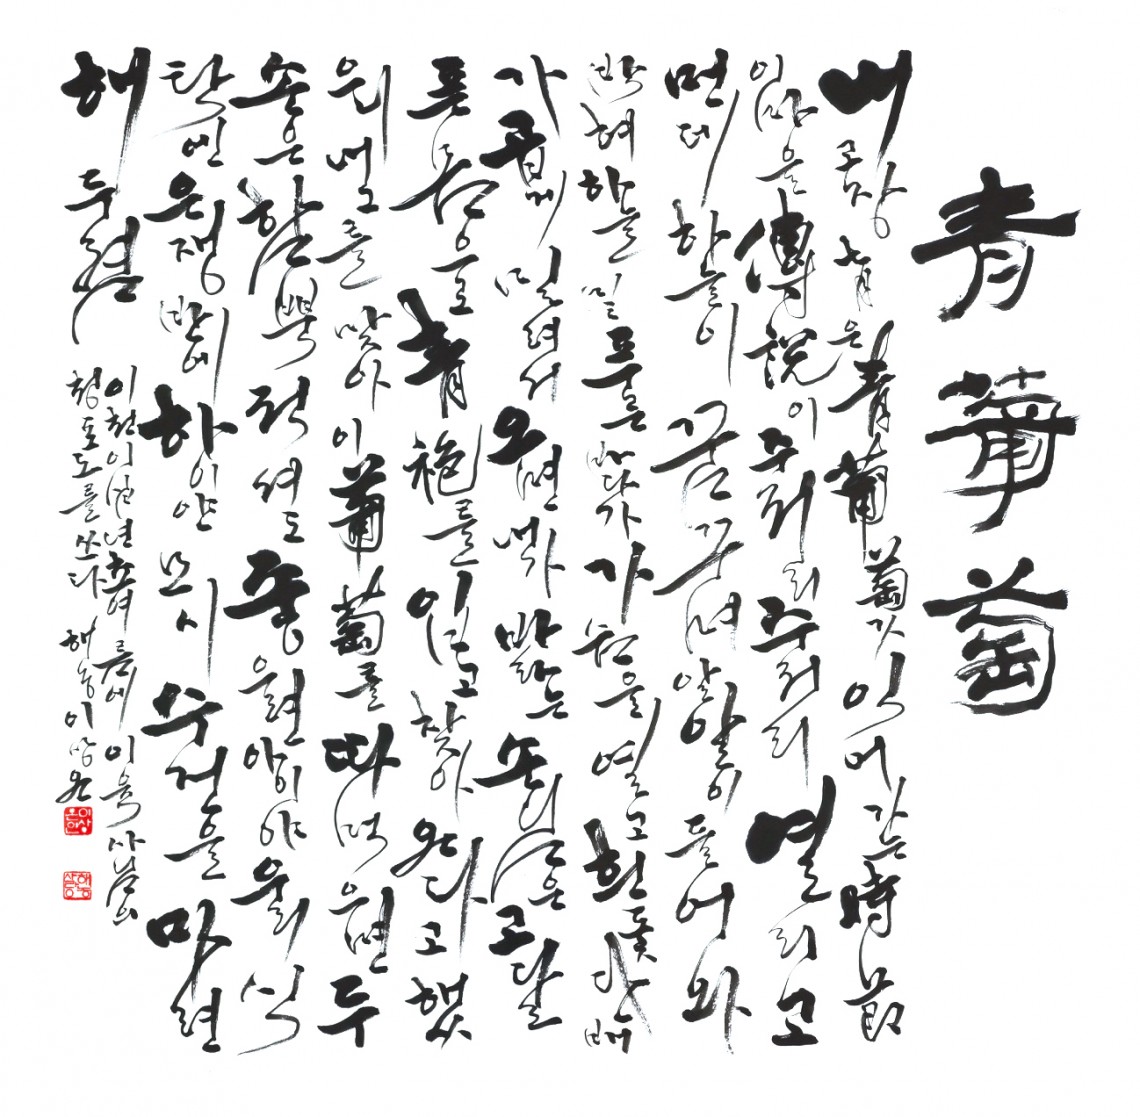 青葡萄
내 고장 七月은 青葡萄가 익어가는 時節
이 마을 傳說이 주저리 주저리 열리고
먼데 하늘이 꿈꾸며 알알이 들어와
박혀 하늘 밑 푸른 바다가 가슴을 열고 흰 돛단배
가 곱게 밀려서 오면 내가 바라는 손님은 고달
픈 몸으로 青袍를 입고 찾아 온다고 했
으니 내 그를 맞아 이 葡萄를 따 먹으면 두
손은 함뿍 적셔도 좋으련 아이야 우리 식
탁엔 은쟁반에 하이얀 모시 수건을 마련
해 두렴
초여름에 이육사님의
청포도를 쓰다